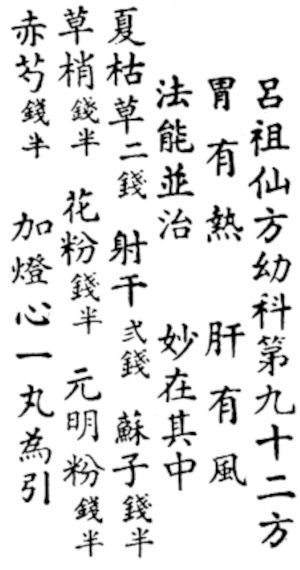 呂祖仙方幼科第九十二方
胃有熱 肝有風
法能並治 妙在其中
夏枯草二錢 射干弍錢 蘇子錢半
草梢錢半 花粉錢半 元明粉錢半
赤芍錢半 加燈心一丸為引